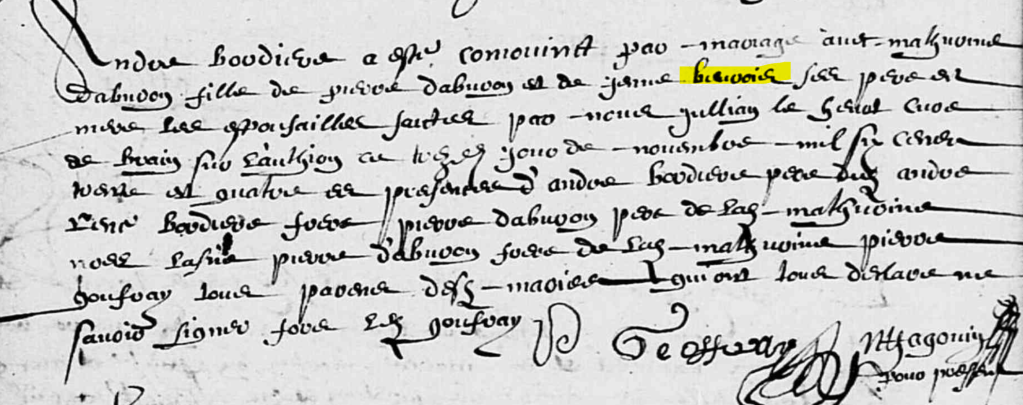 Andre bordiere a esté conioinct par mariage avec mathurine
daburon fille de pierre daburon et de jenne ses pere et
mere les espousailles faictes par nous jullian le curé
de brain sur lauthion ce jour de novembre mil six cens
trente et quatre en presences d'andre bordiere pere dud andre
René bordiere frere pierre daburon pere de lad mathurine
noel pierre daburon frere de lad mathurine pierre
Joufray tous parens desd maries qui ont tous declare ne
savoir signer fors led Joufray
Geoffray